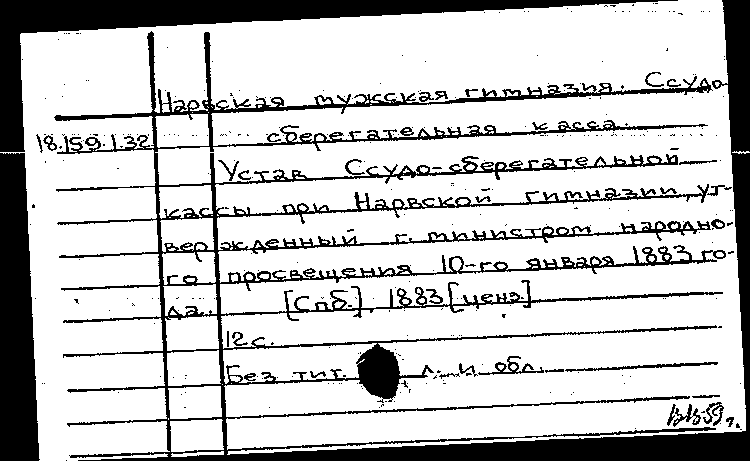 Нарвская мужская гимназия. Ссудо-
18.159.1.32 сберегательная касса.
Устав Ссудо-сберегательной
кассы при Нарвской гимназии, ут-
вержденный г. министром народно-
го просвещения 10-го января 1883 го-
да. [Спб.], 1883 [ценз]
12 с.
Без тит. л. и обл.